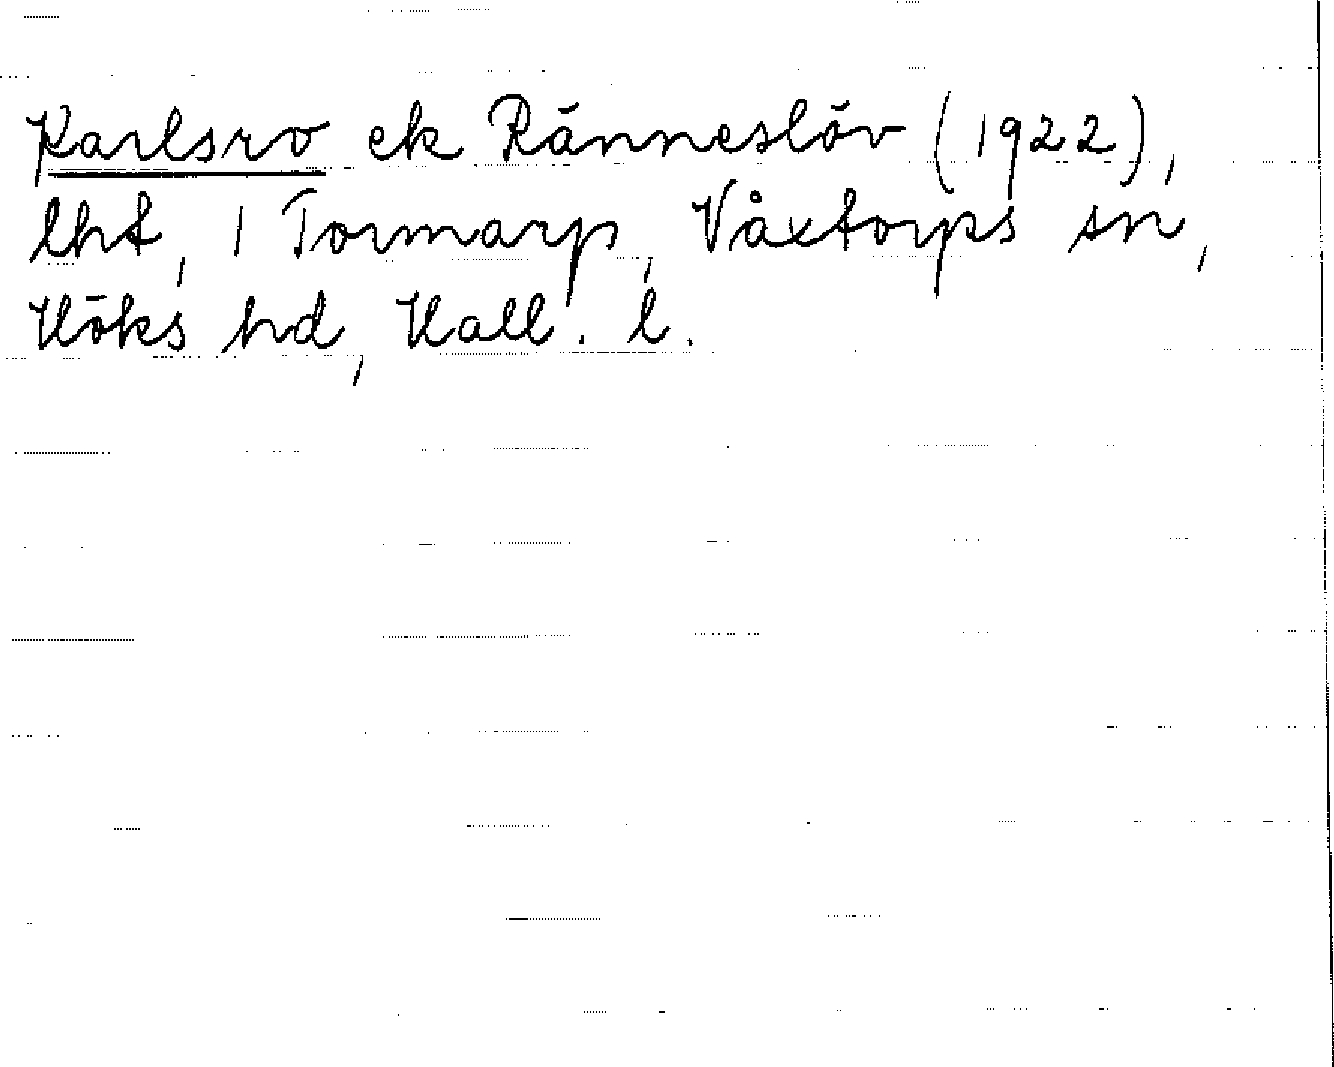 Karlsro ek Ränneslöv (1922),
lht, 1 Tormarp, Våxtorps sn,
Höks hd, Hall. l.